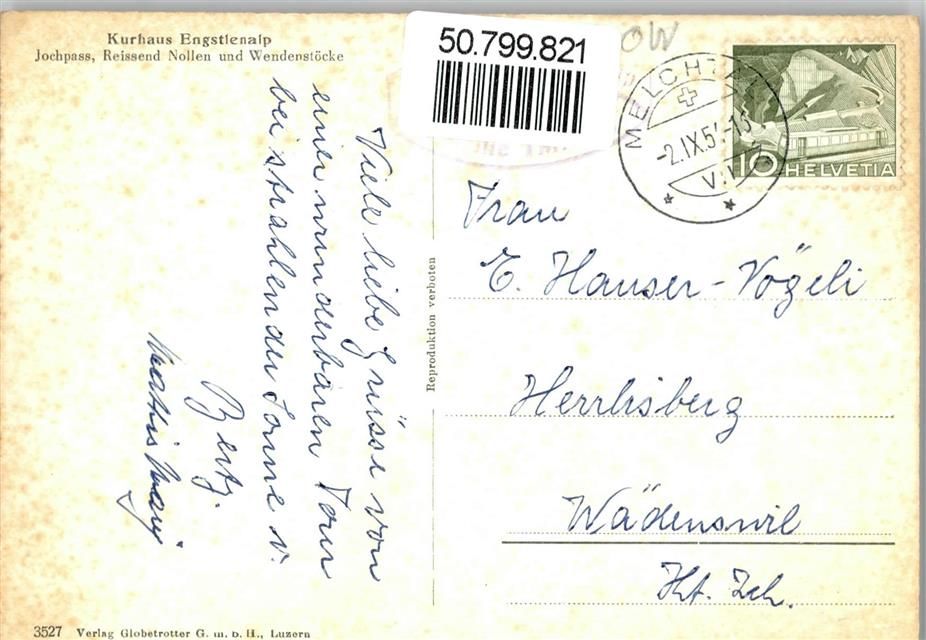 Kurhaus Engstlenalp
Jochpass, Reissend Nollen und Wendenstöcke
50.799.821
OW
MELCHTAL
-2.IX.5
10 HELVETIA
Viele liebe Grüsse von
einer wunderbaren Tour
bei strahlender Sonne v.
Bertz.
Reproduktion verboten
Frau
E. Hauser-Vögeli
Herrlisberg
Wädenswil
Kt. Zch.
3527 Verlag Globetrotter G. m. b. H., Luzern